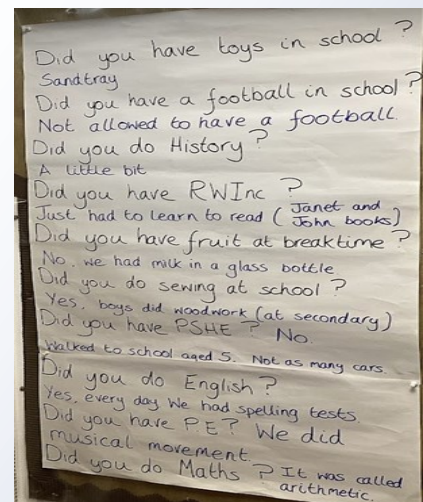 Did you have toys in school ?
Sandtray
Did you have a football in school ?
Not allowed to have a football.
Did you do History ?
A little bit
Did you have RWInc ?
Just had to learn to read ( Janet and John books)
Did you have fruit at breaktime ?
No, we had milk in a glass bottle
Did you do sewing at school ?
Yes, boys did woodwork (at secondary)
Did you have PSHE ? No.
Walked to school aged 5. Not as many cars.
Did you do English ?
Yes, every day. We had spelling tests.
Did you have P.E ? We did
musical movement.
Did you do Maths ? It was called arithmetic.